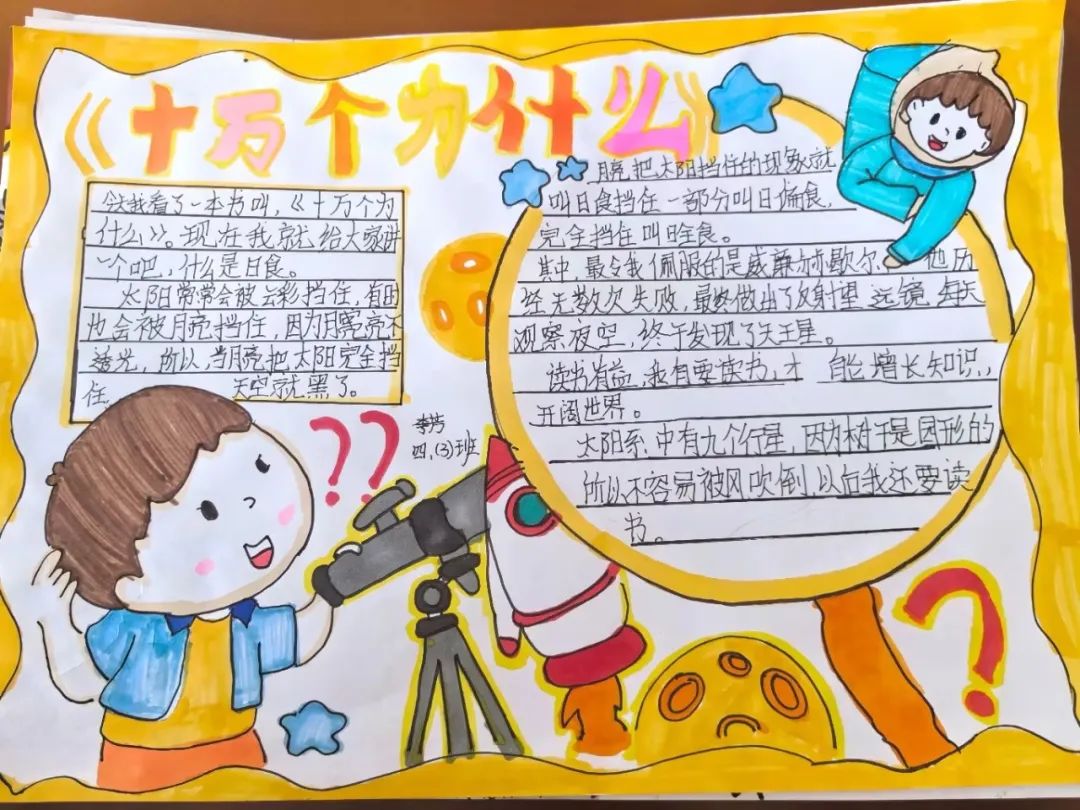 《十万个为什么》
今天我看了一本书叫,《十万个为
什么》。现在我就给大家讲
一个吧,什么是日食。
太阳常常会被云彩挡住,有时
也会被月亮挡住,因为月亮不
透光,所以,当月亮把太阳完全挡
住 天空就黑了。
李芳
四、(3)班
月亮把太阳挡住的现象就
叫日食挡住一部分叫日偏食,
完全挡住叫日全食。
其中,最令我佩服的是威廉赫歇尔 他历
经无数次失败,最终做出了反射望远镜,每天
观察夜空,终于发现了天王星。
读书有益,我有要读书,才 能增长知识,
开阔世界。
太阳系中有九个行星,因为树干是圆形的
所以不容易被风吹倒,以后我还要读
书。
??
?